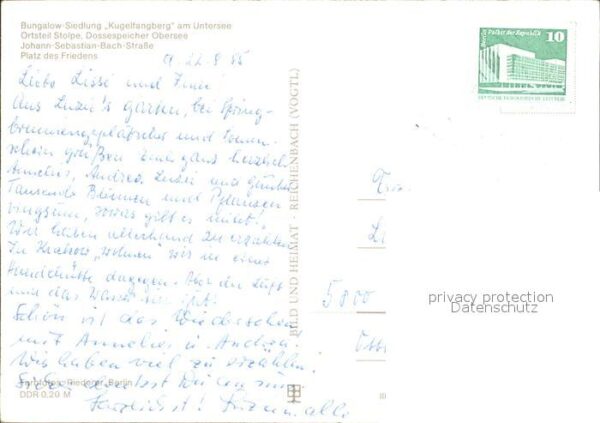 Bungalow-Siedlung „Kugelfangberg" am Untersee
Ortsteil Stolpe, Dossespeicher Obersee
Johann-Sebastian-Bach-Straße
Platz des Friedens
22.8.85
Liebe Lissi und
Aus Luzie's Garten, bei Spring-
brunnengeplätscher und Sonnen-
schein grüßen Euch ganz herzlich
Annelies, Andrea, Luzie und Günther
Tausende Blumen und Pflanzen
ringsum, sowas gibt es nicht!
Wir haben allerhand zu erzählen
In Krakow „wohnen" wir in einer
Hundehütte dagegen. Aber die Luft
und das Wasser
Schön ist das Wiedersehen
mit Annelies u. Andrea.
Wir haben viel zu erzählen.
alle
Farbfotos: Riederer, Berlin
DDR 0,20 M
BILD UND HEIMAT · REICHENBACH (VOGTL)
Berlin Palast der Republik
10
DEUTSCHE DEMOKRATISCHE REPUBLIK
5800
privacy protection
Datenschutz